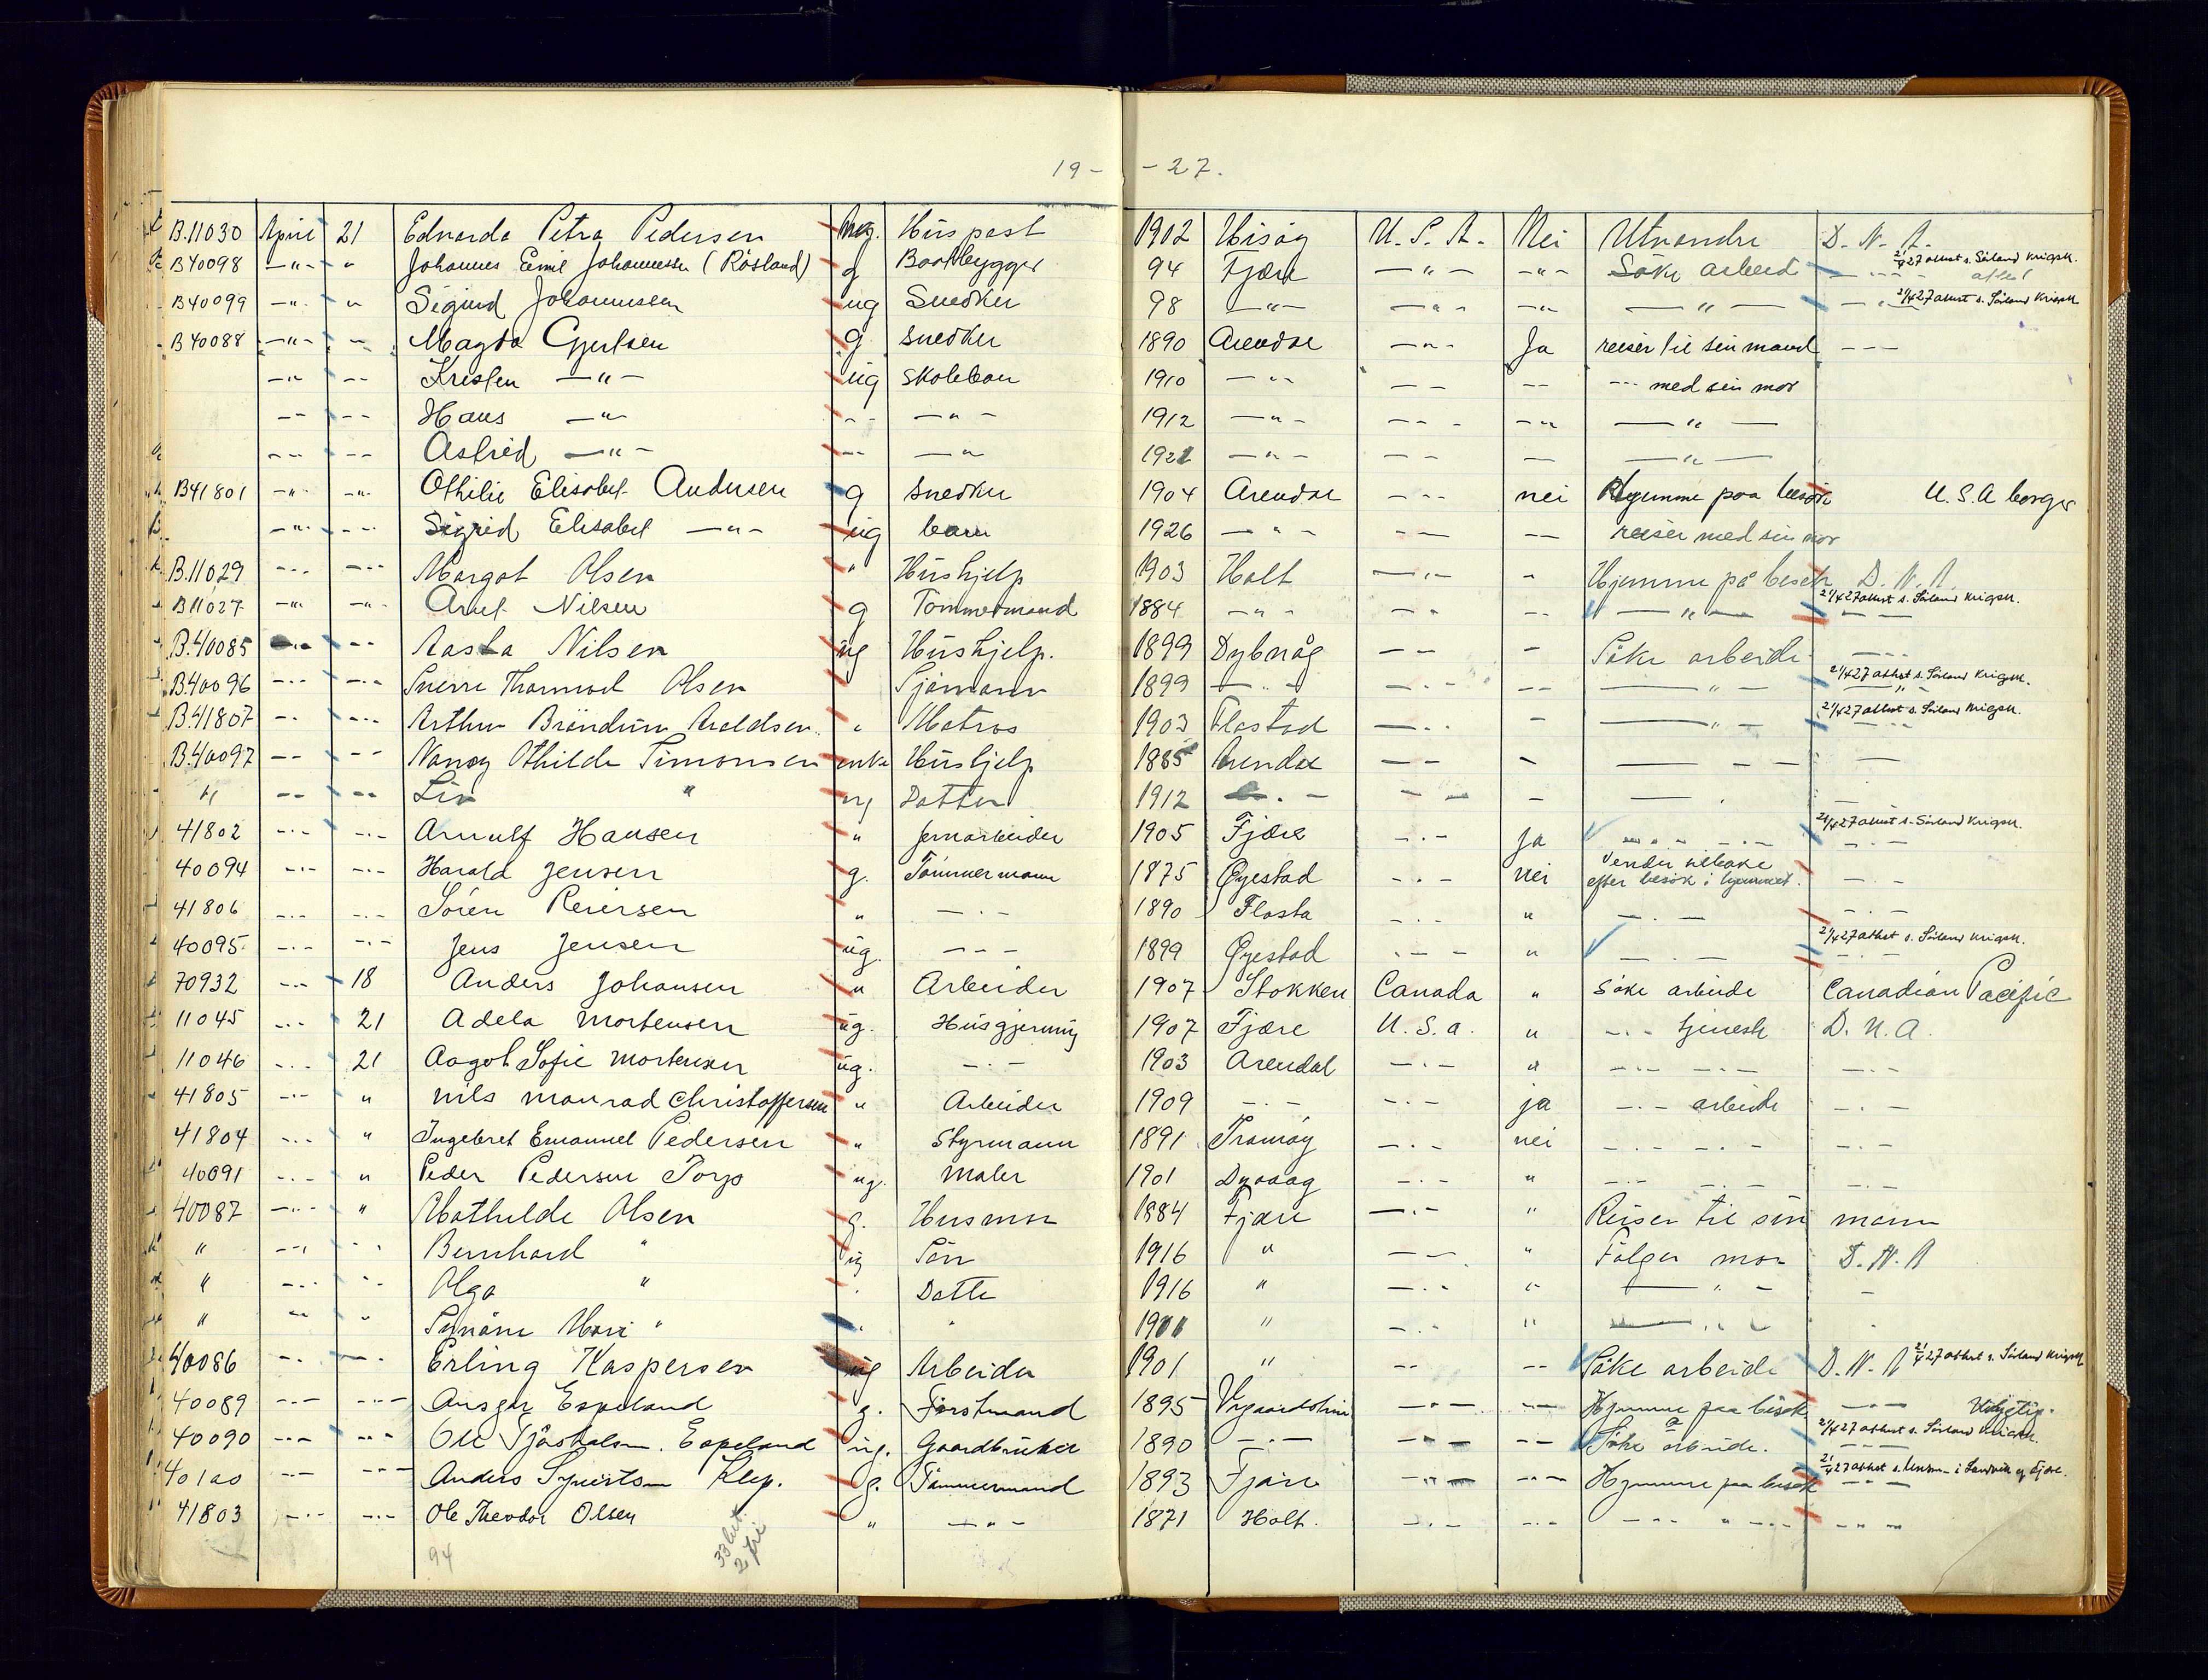 19- -27.
B.11030 April 21 Ednarda Petra Pedersen ug. Huspost 1902 Hisøy U.S.A. Nei Utvandre D.N.A.
B40098 -"- " Johannes Emil Johannessen (Røsland) g Baatbygger 94 Fjære -"- -"- Søke arbeid 21/4 27 attest s. Sørland Krigsk.
B40099 -"- " Sigurd Johannessen ug Snedker 98 -"- -"- -"- -"- 21/4 27 attest s. Sørland Krigsk.
B40088 -"- -"- Magda Gjertsen g. snedker 1890 Arendal -"- Ja reiser til sin mand ---
-"- -- Kristen -"- ug skolebarn 1910 -"- -- -- --- med sin mor
-- -- Hans -"- -- -"- 1912 -"- --- --- -"-
--- -- Astrid -"- --- -"- 1921 -"- -- -- -"-
B41801 -"- -"- Othilie Elisabet Andersen g snedker 1904 Arendal --- nei Hjemme paa besøk U.S.A borger
-"- --- Sigrid Elisabet -"- ug barn 1926 -"- -- -- reiser med sin mor
B.11029 --- --- Margot Olsen " Hushjelp 1903 Holt -"- " Hjemme på besøk D.N.A.
B11027 -"- -"- Arnt Nilsen g Tømmermand 1884 -"- -"- -- -"- 21/4 27 attest s. Sørland Krigsk.
B.40085 --- -- Aasta Nilsen ug Hushjelp. 1899 Dybvåg -- - Søke arbeide ---
B.40096 --- --- Sverre Thormod Olsen Sjømann 1899 -"- --- -- -"- 21/4 27 attest s. Sørland Krigsk.
B.41807 -- --- Arthur Brändum Araldsen " Matros 1903 Flostad --- - -"- 21/4 27 attest s. Sørland Krigsk.
B.40097 -- -- Nancy Othilde Simonsen enke Hushjelp 1885 Arendal -- - --- --
" -- -- Liv " ug Datter 1912 -.- -- - --
41802 --- --- Arnulf Hansen " Jernarbeider 1905 Fjære --- Ja --- 21/4 27 attest s. Sørland Krigsk.
40094 --- --- Harald Jensen g. Tømmermann 1875 Øyestad --- nei Vender tilbake efter besøk i hjemmet. ---
41806 --- --- Søren Reiersen " --- 1890 Flosta --- " --- ---
40095 --- --- Jens Jensen ug. --- 1899 Øyestad --- " --- 21/4 27 attest s. Sørland Krigsk.
70932 --- 18 Anders Johansen " Arbeider 1907 Stokken Canada " Søke arbeide Canadian Pacific
11045 --- 21 Adela Mortensen ug. Husgjerning 1907 Fjære U.S.a. " --- tjeneste D.N.A.
11046 --- 21 Aagot Sofie Mortensen ug. --- 1903 Arendal --- " --- ---
41805 --- " Nils Monrad Christoffersen " Arbeider 1909 --- --- ja --- arbeide ---
41804 --- " Ingebret Emanuel Pedersen " Styrmann 1891 Tromøy --- nei --- ---
40091 --- " Peder Pedersen Torp ug. Maler 1901 Dyvaag --- " --- ---
40087 --- " Mathilde Olsen g. Husmor 1884 Fjære --- " Reiser til sin mann
" --- -- Bernhard " ug Søn 1916 " -- " Følger mor D.N.A
" --- -- Olga " Datte 1916 " --- " -"- -
" -- " Synøve Mari " 1911 " --- " ---
40086 -- --- Erling Kaspersen ug Arbeider 1901 " -- -- Søke arbeide D.N.A 21/4 27 attest s. Sørland Krigsk
40089 --- --- Ansgar Espeland g. Forstmand 1895 Vegaardshei --- --- Hjemme paa besøk ---
40090 --- --- Ole Espeland ug. Gaardbruker 1890 --- --- -- Søke arbeide. 21/4 27 attest s. Sørland Krigsk.
40100 -- --- Anders Syvertsen Klep. g. Tømmermand 1893 Fjære --- --- Hjemme paa besøk 21/4 27 attest s. lensm. i Landvik og Fjære.
41803 --- --- Ole Theodor Olsen " -"- 1871 Holt. --- --- --- " --- ---
94